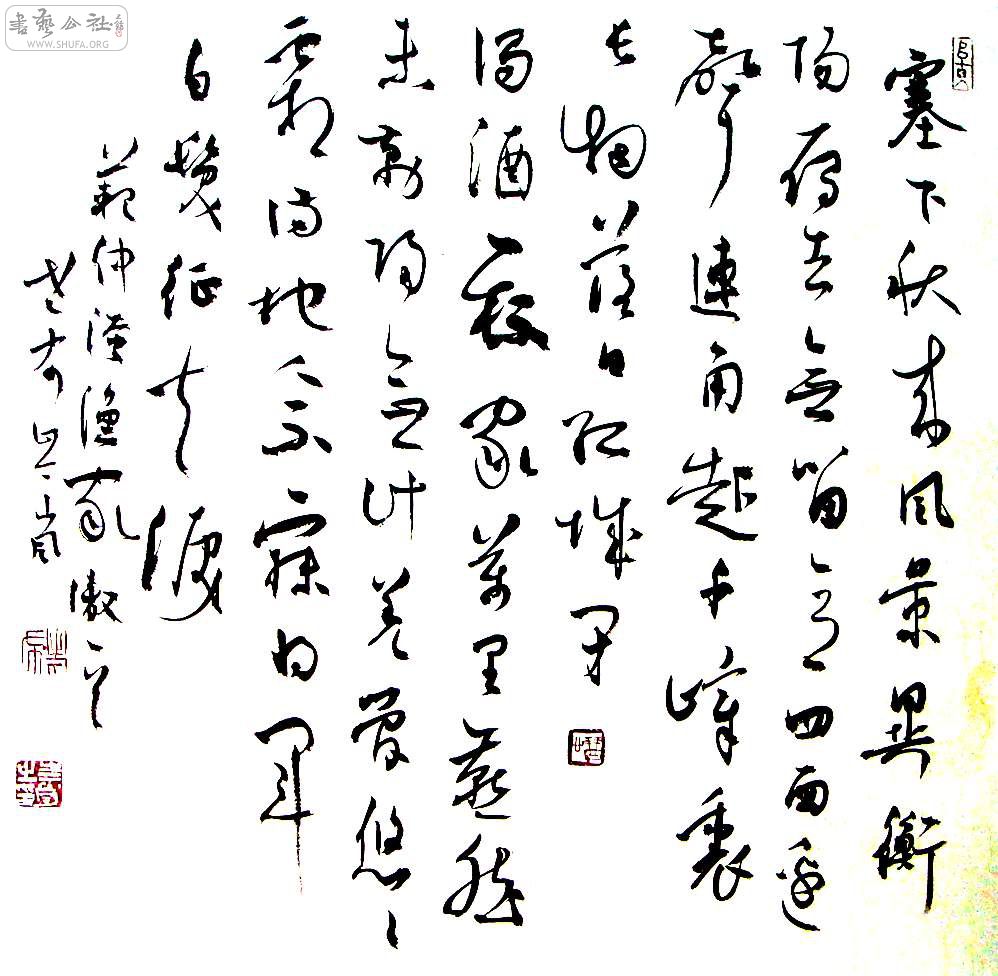 書藝公社
WWW.SHUFA.ORG
塞下秋来風景異衡
陽雁去無留意四面邊
聲連角起千嶂裏
长烟落日孤城闭
濁酒一杯家萬里燕然
未勒歸無計羌管悠悠
霜满地人不寐將軍
白髮征夫淚
範仲淹漁家傲一首